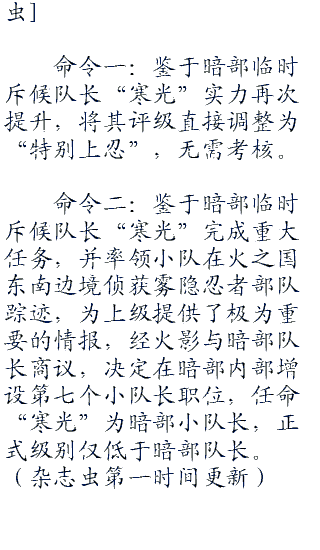 虫]
命令一：鉴于暗部临时
斥候队长“寒光”实力再次
提升，将其评级直接调整为
“特别上忍”，无需考核。
命令二：鉴于暗部临时
斥候队长“寒光”完成重大
任务，并率领小队在火之国
东南边境侦获雾隐忍者部队
踪迹，为上级提供了极为重
要的情报，经火影与暗部队
长商议，决定在暗部内部增
设第七个小队长职位，任命
“寒光”为暗部小队长，正
式级别仅低于暗部队长。
（杂志虫第一时间更新）